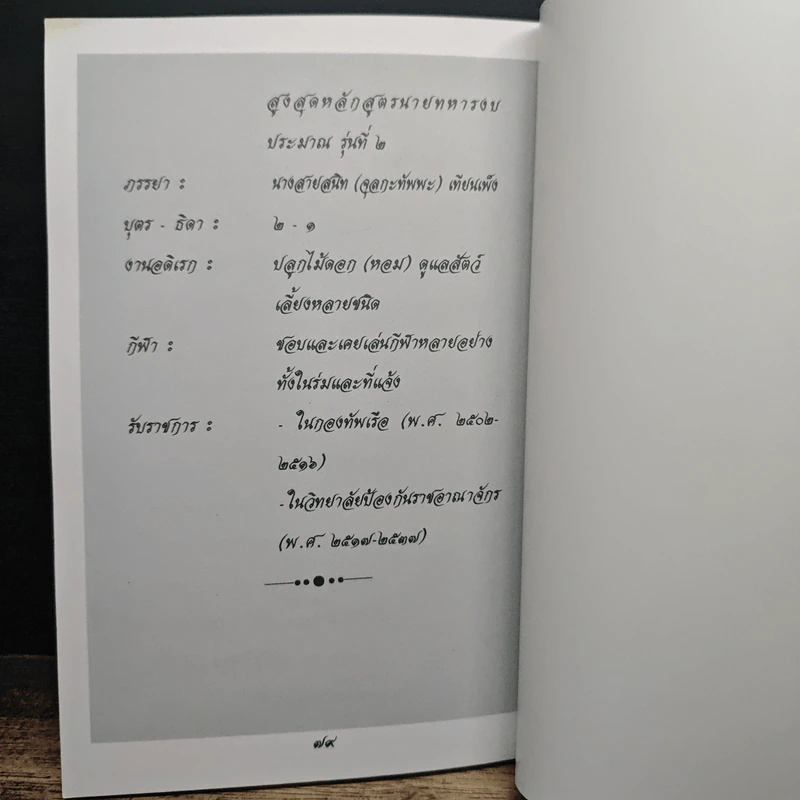 สูงสุดหลักสูตรนายทหารงบ
ประมาณ รุ่นที่ ๒
ภรรยา : นางสายสนิท (จุลกะทัพพะ) เทียนเพ็ง
บุตร - ธิดา : ๒ - ๑
งานอดิเรก : ปลูกไม้ดอก (หอม) ดูแลสัตว์
เลี้ยงหลายชนิด
กีฬา : ชอบและเคยเล่นกีฬาหลายอย่าง
ทั้งในร่มและที่แจ้ง
รับราชการ : - ในกองทัพเรือ (พ.ศ. ๒๕๐๒-
๒๕๑๖)
-ในวิทยาลัยป้องกันราชอาณาจักร
(พ.ศ. ๒๕๑๗-๒๕๓๗)
๗๙